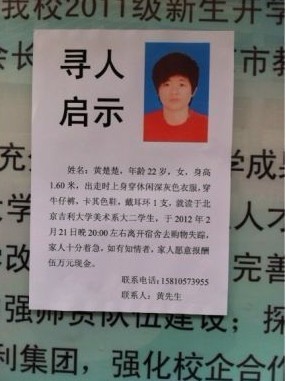 我校2011级新生开学
会长
市教
寻人
启示
姓名：黄楚楚，年龄 22 岁，女，身高
1.60 米，出走时上身穿休闲深灰色衣服，穿
牛仔裤，卡其色鞋，戴耳环 1 支，就读于
北京吉利大学美术系大二学生，于 2012 年 2
月 21 日晚 20:00 左右离开宿舍去购物失踪，
家人十分着急，如有知情者，家人愿意报酬
伍万元现金。
联系电话：15810573955
联系人：黄先生
充
学成果
大学
人才
学改
完善
强师资队伍建设；探
利集团，强化校企合